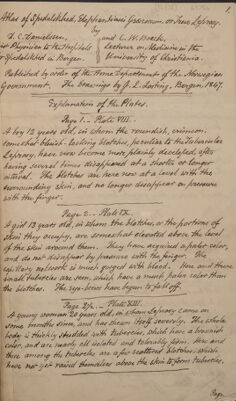 1.
Atlas of Spedalskhed, Elephantiasis Graecorum, or True Leprosy.
by
D. C. Danielssen, and C. W. Boeck,
Physician to the Hospitals Lecturer on Medicine in the
Spedalskhed in Bergen. University of Christiania.
Published by order of the Home Department of the Norwegian
Government. The drawings by J. L. Losting, Bergen, 1847.
Explanation of the Plates.
Page 1. — Plate VIII.
A boy 12 years old, in whom the roundish, crimson,
somewhat bluish-looking blotches, peculiar to the Tubercular
Leprosy, have now become more plainly developed, after
having several times disappeared at a shorter or longer
interval. The blotches are here now at a level with the
surrounding skin, and no longer disappear on pressure
with the finger.
Page 2. — Plate IX.
A girl 13 years old, in whom the blotches, or the portions of
skin they occupy, are somewhat elevated above the level
of the skin around them. They have acquired a paler color,
and do not disappear by pressure with the finger. The
capillary network is much gorged with blood. Here and there
small tubercles are seen, which have a much paler color than
the blotches. The eye-brows have begun to fall off.
Plate XIII.
A young woman 20 years old, in whom Leprosy came on
some months since, and has shown itself severely. The whole
body is thickly studded with tubercles, which have a brownish
color, and are mostly all isolated and tolerably firm. Here and
there among the tubercles are a few scattered blotches, which
have not yet raised themselves above the skin to form tubercles.
Page